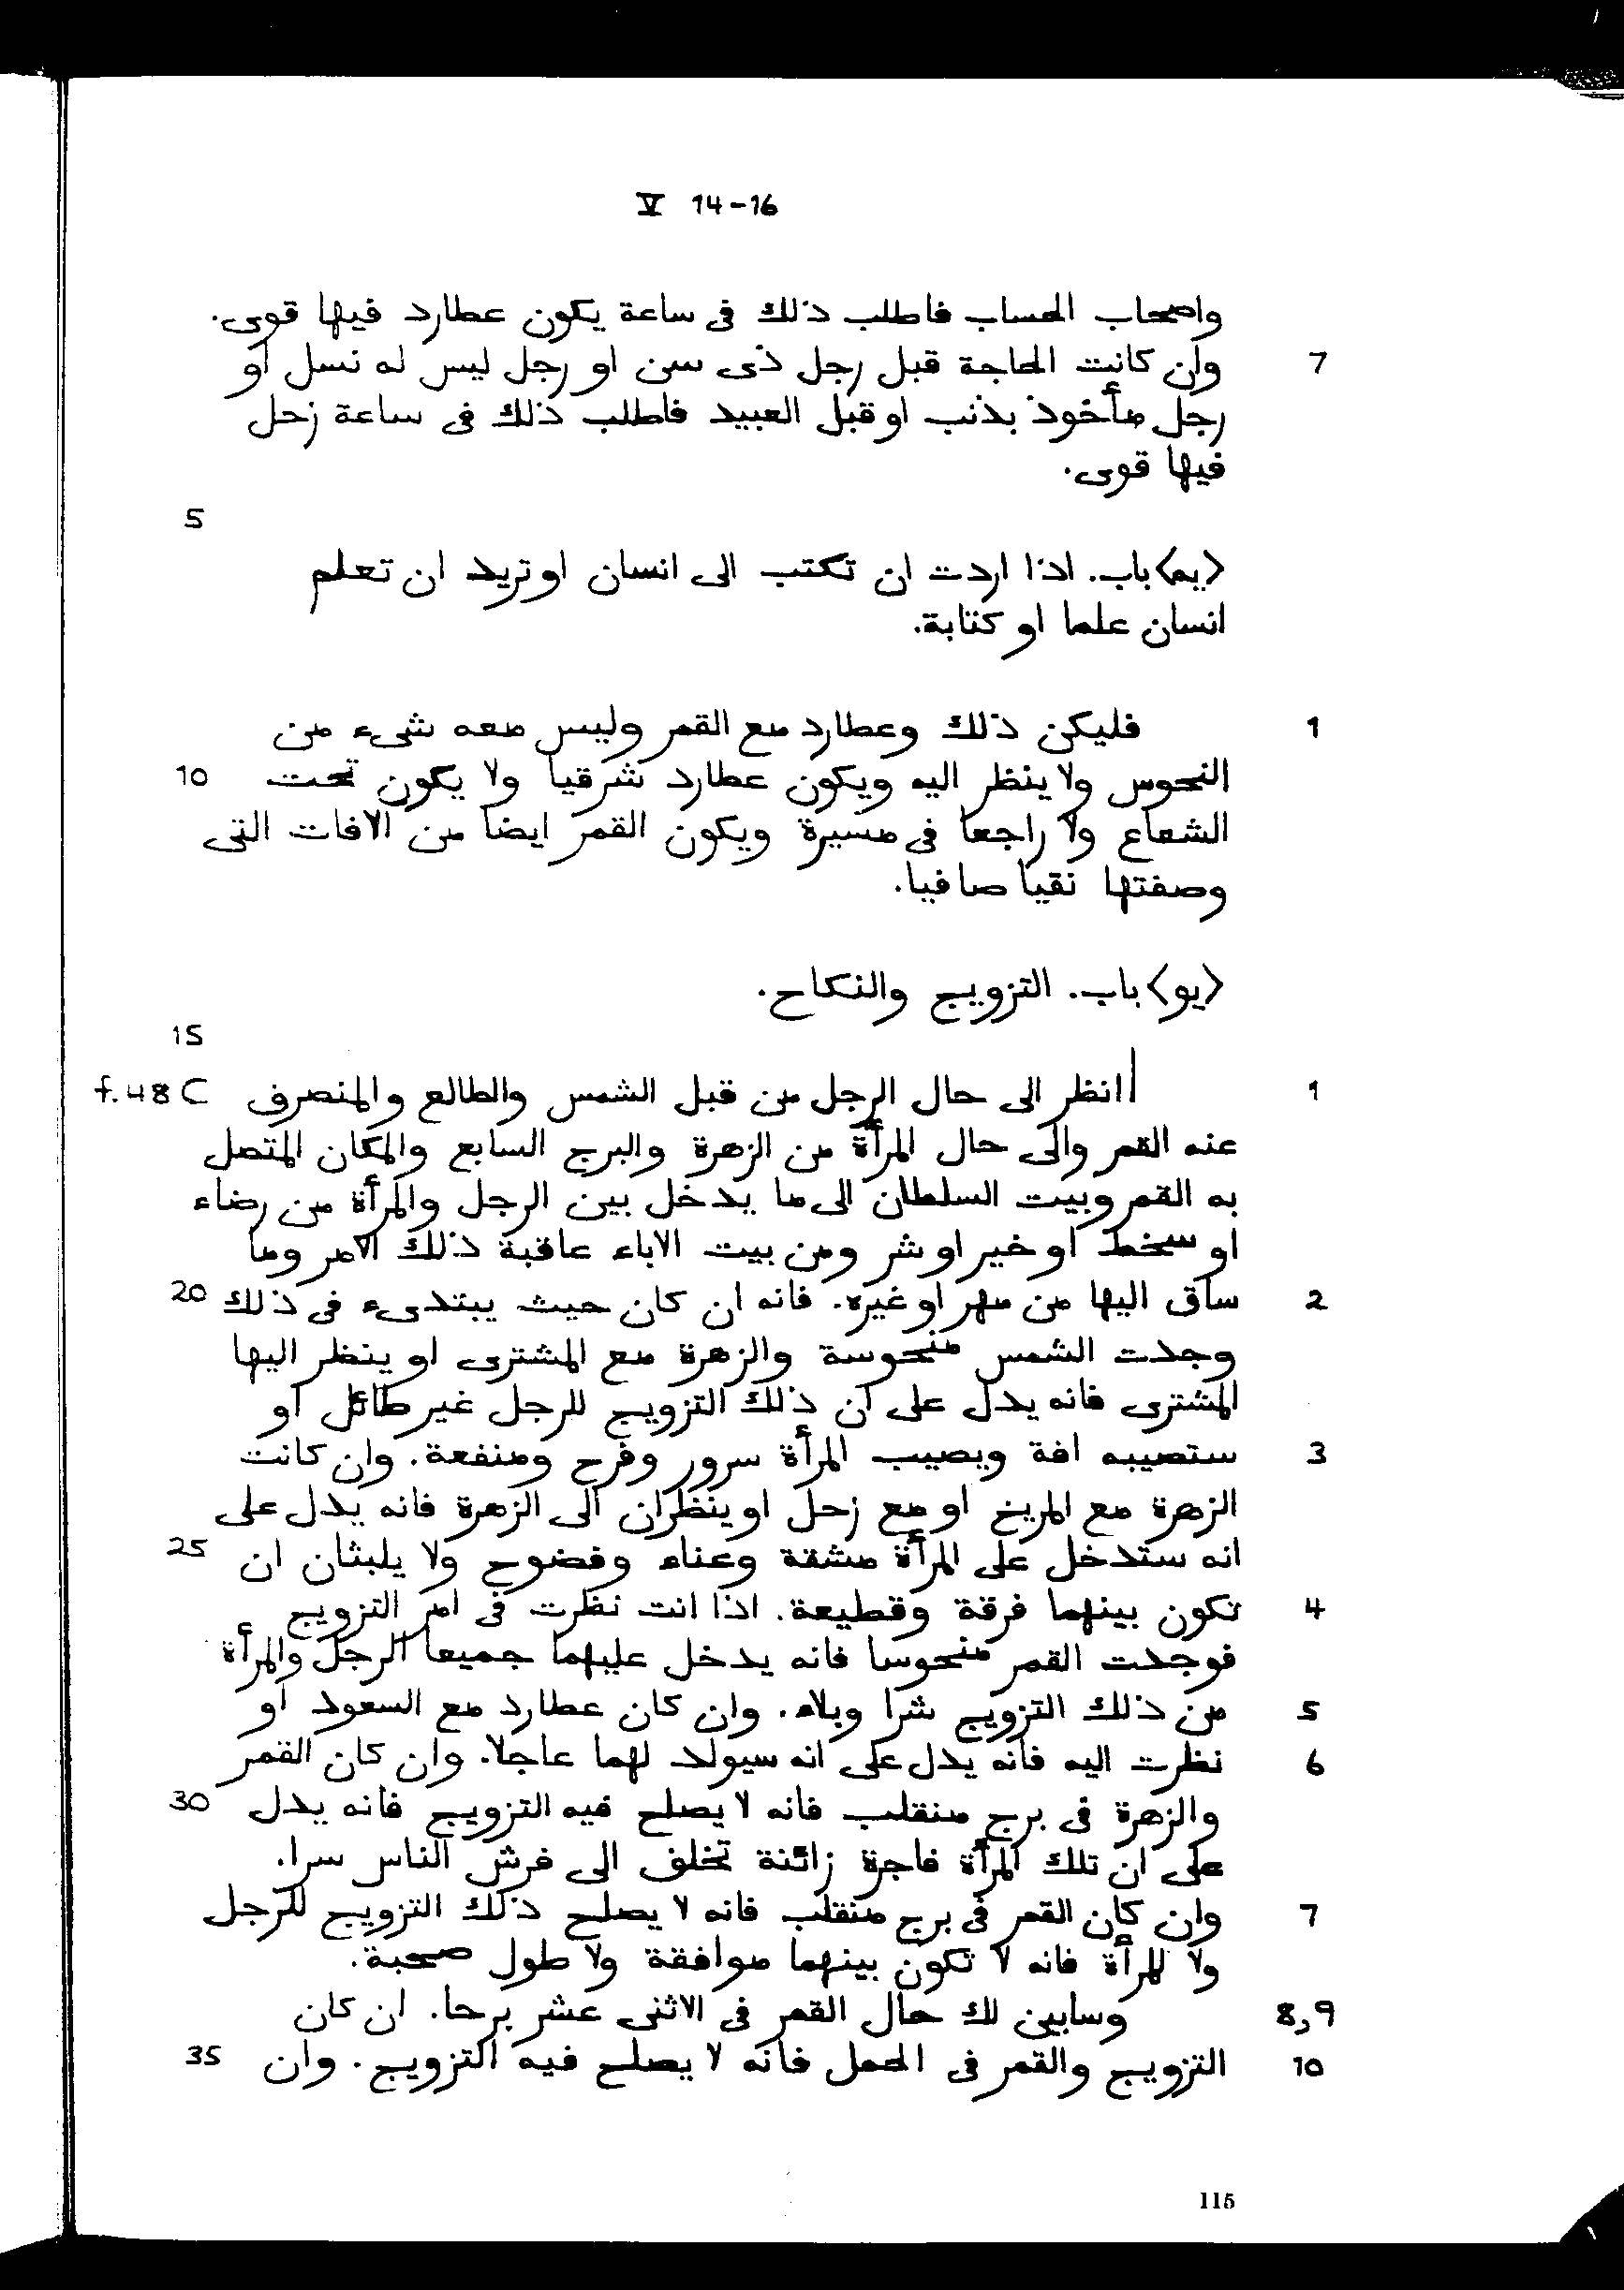 V 14-16
واصحاب الحساب فاطلب ذلك فى ساعة يكون عطارد فيها قوى.
7 وان كانت الحاجة قبل رجل ذى سن او رجل ليس له نسل او
رجل مأخوذ بذنب او قبل العبيد فاطلب ذلك فى ساعة زحل
فيها قوى.
5
<يه> باب. اذا اردت ان تكتب الى انسان او تريد ان تعلم
انسان علما او كتابة.
1 فليكن ذلك وعطارد مع القمر وليس معه شىء من
النحوس ولا ينظر اليه ويكون عطارد شرقيا ولا يكون تحت 10
الشعاع ولا راجعا فى مسيرة ويكون القمر ايضا من الافات التى
وصفتها نقيا صافيا.
<يو> باب. التزويج والنكاح.
15
1 |انظر الى حال الرجل من قبل الشمس والطالع والمنصرف f. 48 C
عنه القمر والى حال المرأة من الزهرة والبرج السابع والمكان المتصل
به القمر وبيت السلطان الى ما يدخل بين الرجل والمرأة من رضاء
او سخط او خير او شر ومن بيت الاباء عاقبة ذلك الامر وما
2 ساق اليها من مهر او غيره. فانه ان كان حيث يبتدىء فى ذلك 20
وجدت الشمس منحوسة والزهرة مع المشترى او ينظر اليها
المشترى فانه يدل على ان ذلك التزويج للرجل غير طائل او
3 ستصيبه افة ويصيب المرأة سرور وفرح ومنفعة. وان كانت
الزهرة مع المريخ او مع زحل او ينظران الى الزهرة فانه يدل على
انه ستدخل على المرأة مشقة وعناء وفضوح ولا يلبثان ان 25
4 تكون بينهما فرقة وقطيعة. اذا انت نظرت فى امر التزويج
فوجدت القمر منحوسا فانه يدخل عليهما جميعا الرجل والمرأة
5 من ذلك التزويج شرا وبلاء. وان كان عطارد مع السعود او
6 نظرت اليه فانه يدل على انه سيولد لهما عاجلا. وان كان القمر
والزهرة فى برج منقلب فانه لا يصلح فيه التزويج فانه يدل 30
على ان تلك المرأة فاجرة زائنة تخلف الى فرش الناس سرا.
7 وان كان القمر فى برج منقلب فانه لا يصلح ذلك التزويج للرجل
ولا للمرأة فانه لا تكون بينهما موافقة ولا طول صحبة.
8,9 وسابين لك حال القمر فى الاثنى عشر برحا. ان كان
10 التزويج والقمر فى الحمل فانه لا يصلح فيه التزويج. وان 35
115